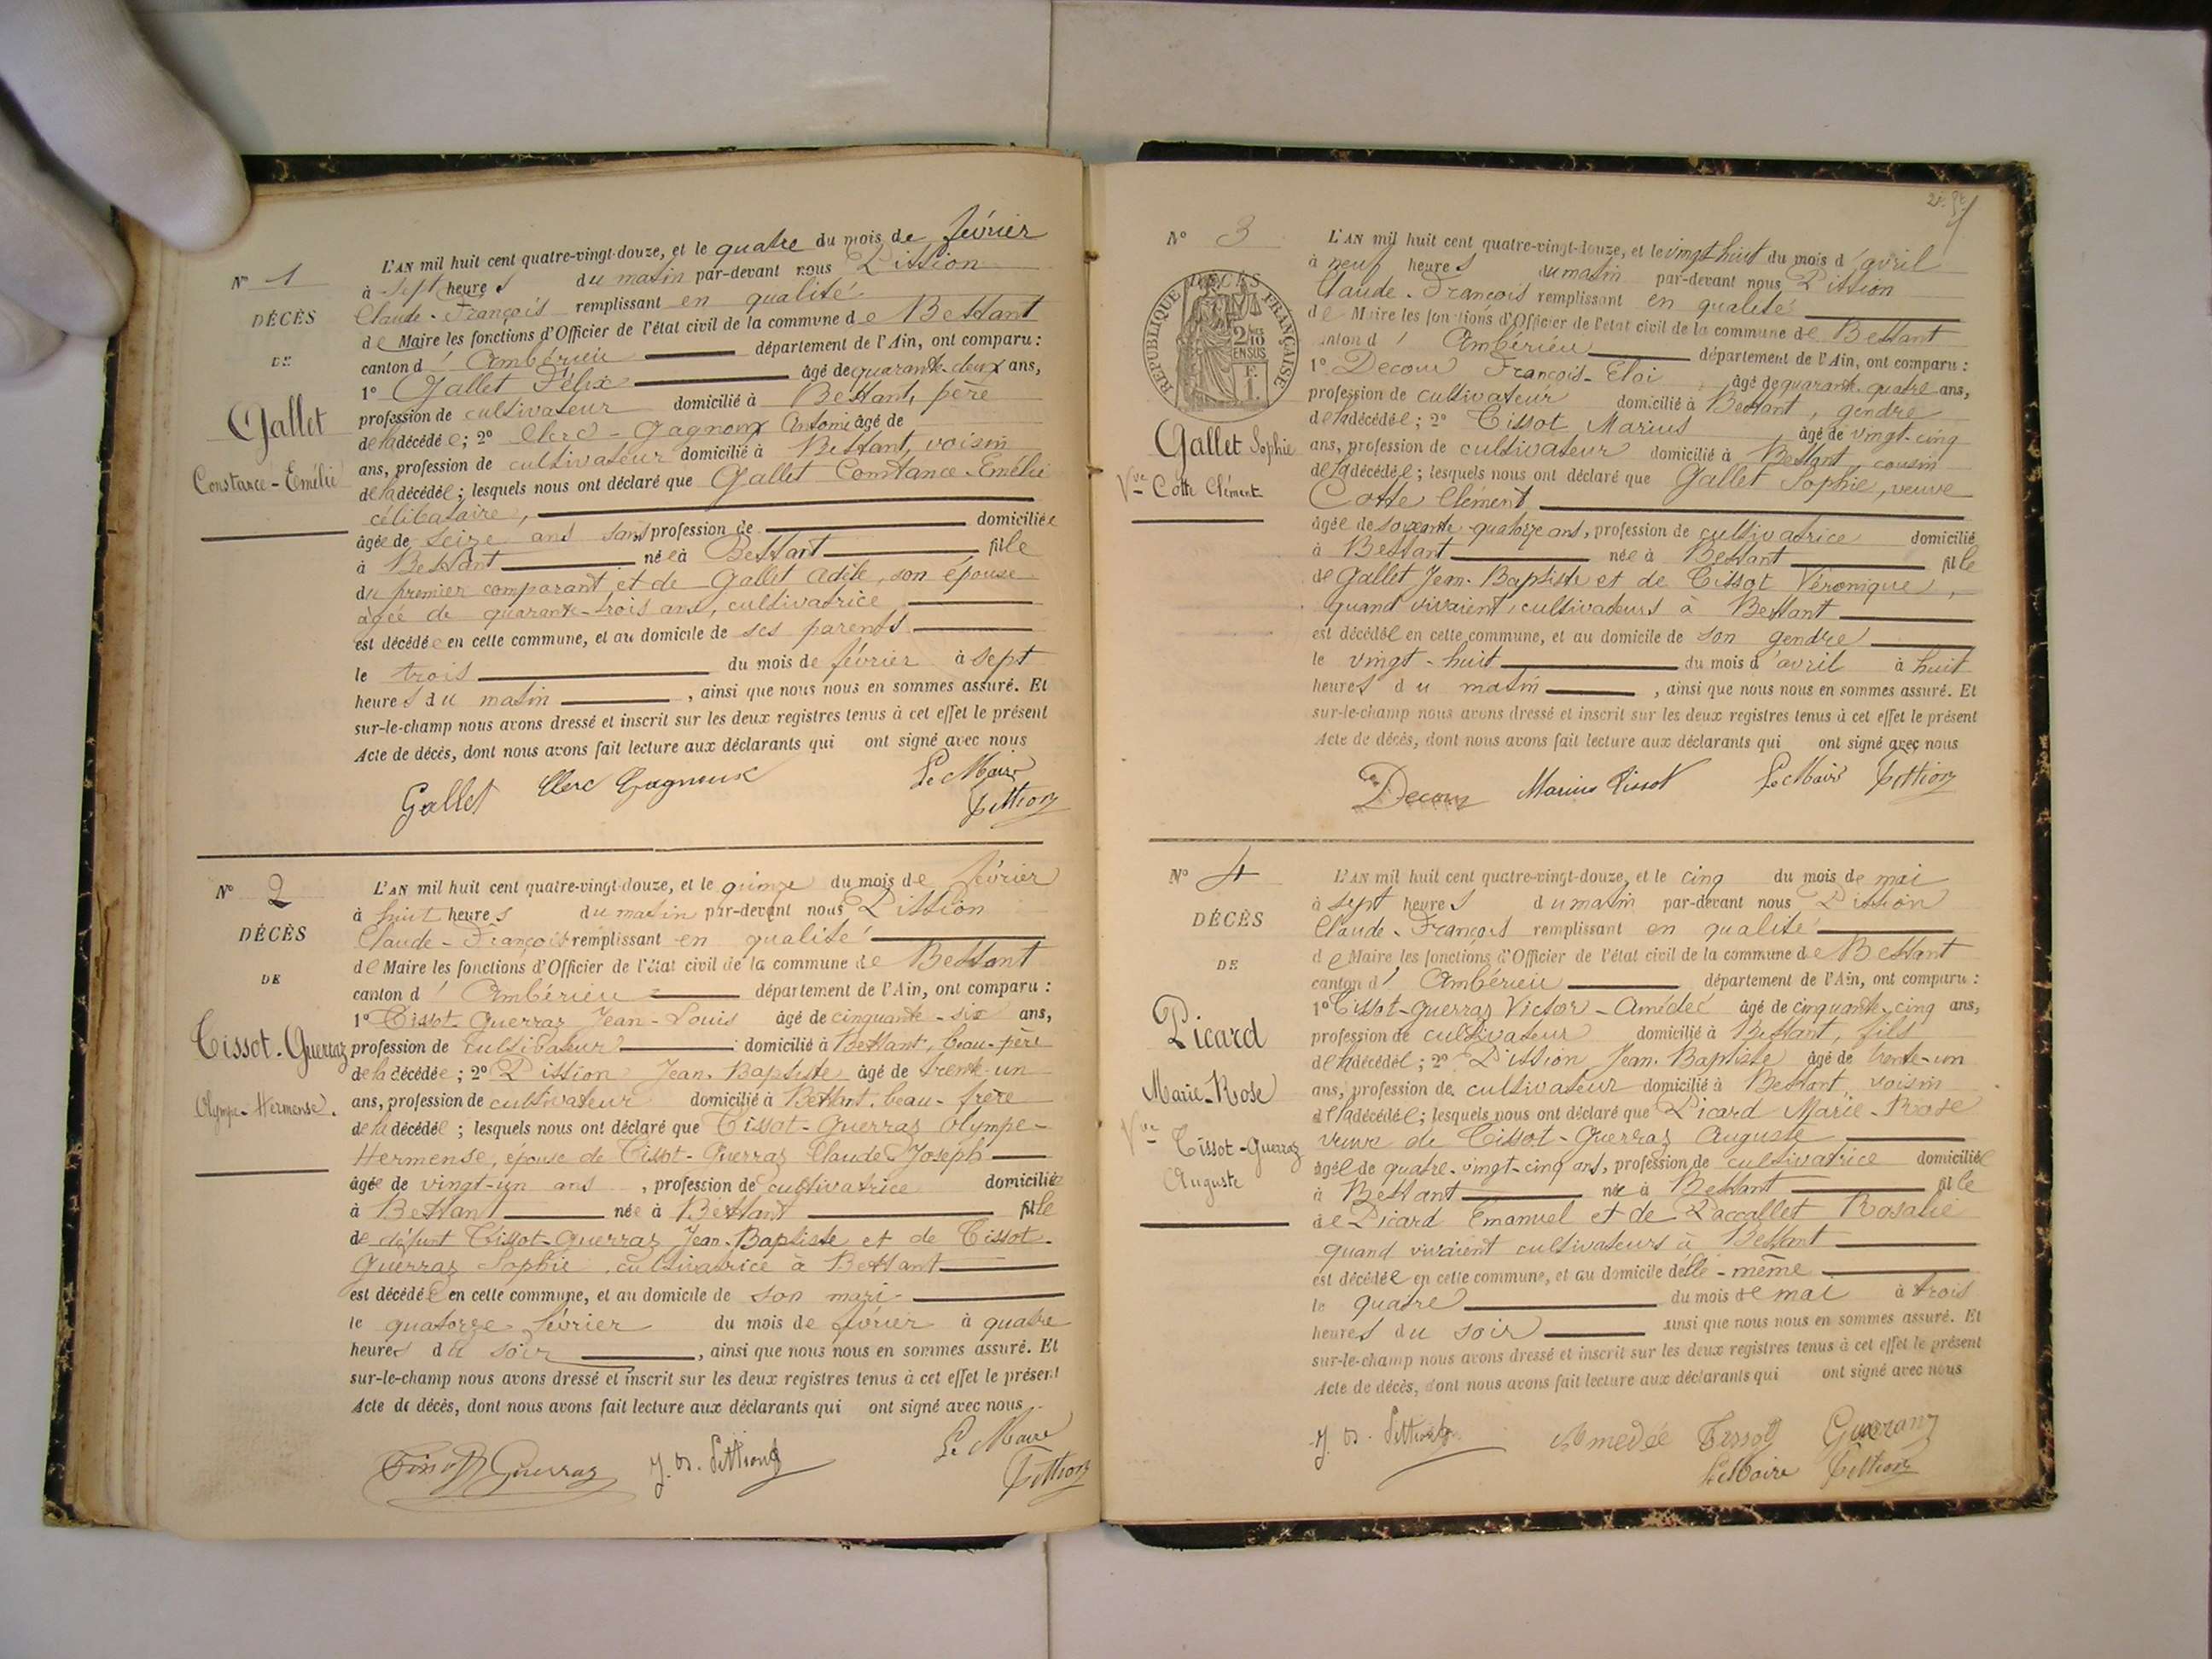 N° 1
DÉCÈS
DE
Gallet
Constance-Emélie
L'AN mil huit cent quatre-vingt-douze, et le quatre du mois de février
à sept heures du matin par-devant nous Pittion
Claude-François remplissant en qualité
de Maire les fonctions d'Officier de l'état civil de la commune de Bettant
canton d'Ambérieu département de l'Ain, ont comparu :
1° Gallet Félix âgé de quarante-deux ans,
profession de cultivateur domicilié à Bettant, père
de la décédée ; 2° Clerc-Gagnoux Antoine âgé de
ans, profession de cultivateur domicilié à Bettant, voisin
de la décédée ; lesquels nous ont déclaré que Gallet Constance-Emélie
célibataire,
âgée de seize ans sans profession de domiciliée
à Bettant née à Bettant fille
du premier comparant et de Gallet Adèle, son épouse
âgée de quarante-trois ans, cultivatrice
est décédée en cette commune, et au domicile de ses parents
le trois du mois de février à sept
heures du matin , ainsi que nous nous en sommes assuré. Et
sur-le-champ nous avons dressé et inscrit sur les deux registres tenus à cet effet le présent
Acte de décès, dont nous avons fait lecture aux déclarants qui ont signé avec nous
Gallet Clerc Gagnoux Le Maire
Pittion
N° 2
DÉCÈS
DE
Tissot-Guerraz
Olympe-Hermense.
L'AN mil huit cent quatre-vingt-douze, et le quinze du mois de février
à huit heures du matin par-devant nous Pittion
Claude-François remplissant en qualité
de Maire les fonctions d'Officier de l'état civil de la commune de Bettant
canton d'Ambérieu département de l'Ain, ont comparu :
1° Tissot-Guerraz Jean-Louis âgé de cinquante-six ans,
profession de cultivateur domicilié à Bettant, beau-père
de la décédée ; 2° Pittion Jean-Baptiste âgé de trente-un
ans, profession de cultivateur domicilié à Bettant, beau-frère
de la décédée ; lesquels nous ont déclaré que Tissot-Guerraz Olympe-
Hermense, épouse de Tissot-Guerraz Claude Joseph
âgée de vingt-un ans , profession de cultivatrice domiciliée
à Bettant née à Bettant fille
de défunt Tissot-Guerraz Jean-Baptiste et de Tissot-
Guerraz Sophie, cultivatrice à Bettant
est décédée en cette commune, et au domicile de son mari
le quatorze février du mois de février à quatre
heures du soir , ainsi que nous nous en sommes assuré. Et
sur-le-champ nous avons dressé et inscrit sur les deux registres tenus à cet effet le présent
Acte de décès, dont nous avons fait lecture aux déclarants qui ont signé avec nous
Tissot Guerraz J. B. Pittion Le Maire
Pittion
N° 3
RÉPUBLIQUE FRANÇAISE
DÉCÈS
2/10
EN SUS
Gallet Sophie
Vve Cotte Clément
L'AN mil huit cent quatre-vingt-douze, et le vingt huit du mois d'avril
à neuf heures du matin par-devant nous Pittion
Claude-François remplissant en qualité
de Maire les fonctions d'Officier de l'état civil de la commune de Bettant
canton d'Ambérieu département de l'Ain, ont comparu :
1° Decour François-Eloi âgé de quarante-quatre ans,
profession de cultivateur domicilié à Bettant, gendre
de la décédée ; 2° Tissot Marius âgé de vingt-cinq
ans, profession de cultivateur domicilié à Bettant cousin
de la décédée ; lesquels nous ont déclaré que Gallet Sophie, veuve
Cotte Clément
âgée de soixante-quatorze ans, profession de cultivatrice domicilié
à Bettant née à Bettant fille
de Gallet Jean-Baptiste et de Tissot Véronique,
quand vivaient, cultivateurs à Bettant
est décédée en cette commune, et au domicile de son gendre
le vingt-huit du mois d'avril à huit
heures du matin , ainsi que nous nous en sommes assuré. Et
sur-le-champ nous avons dressé et inscrit sur les deux registres tenus à cet effet le présent
Acte de décès, dont nous avons fait lecture aux déclarants qui ont signé avec nous
Decour Marius Tissot Le Maire Pittion
N° 4
DÉCÈS
DE
Picard
Marie-Rose
Vve Tissot-Guerraz
Auguste
L'AN mil huit cent quatre-vingt-douze, et le cinq du mois de mai
à sept heures du matin par-devant nous Pittion
Claude-François remplissant en qualité
de Maire les fonctions d'Officier de l'état civil de la commune de Bettant
canton d'Ambérieu département de l'Ain, ont comparu :
1° Tissot-Guerraz Victor-Amédée âgé de cinquante-cinq ans,
profession de cultivateur domicilié à Bettant, fils
de la décédée ; 2° Pittion Jean-Baptiste âgé de trente-un
ans, profession de cultivateur domicilié à Bettant, voisin
de la décédée ; lesquels nous ont déclaré que Picard Marie-Rose
veuve de Tissot-Guerraz Auguste
âgée de quatre-vingt-cinq ans, profession de cultivatrice domiciliée
à Bettant née à Bettant fille
de Picard Emanuel et de Paccallet Rosalie
quand vivaient cultivateurs à Bettant
est décédée en cette commune, et au domicile d'elle-même
le quatre du mois de mai à trois
heures du soir ainsi que nous nous en sommes assuré. Et
sur-le-champ nous avons dressé et inscrit sur les deux registres tenus à cet effet le présent
Acte de décès, dont nous avons fait lecture aux déclarants qui ont signé avec nous
J. B. Pittion Amedée Tissot Gueraz
Le Maire Pittion